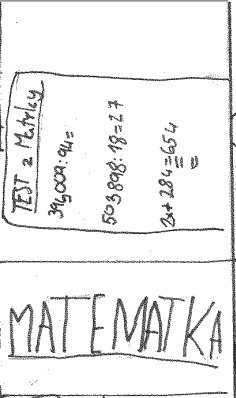 TEST z Matyky
396009:94=
503898:18=27
2x+284=654
=
MATEMATKA